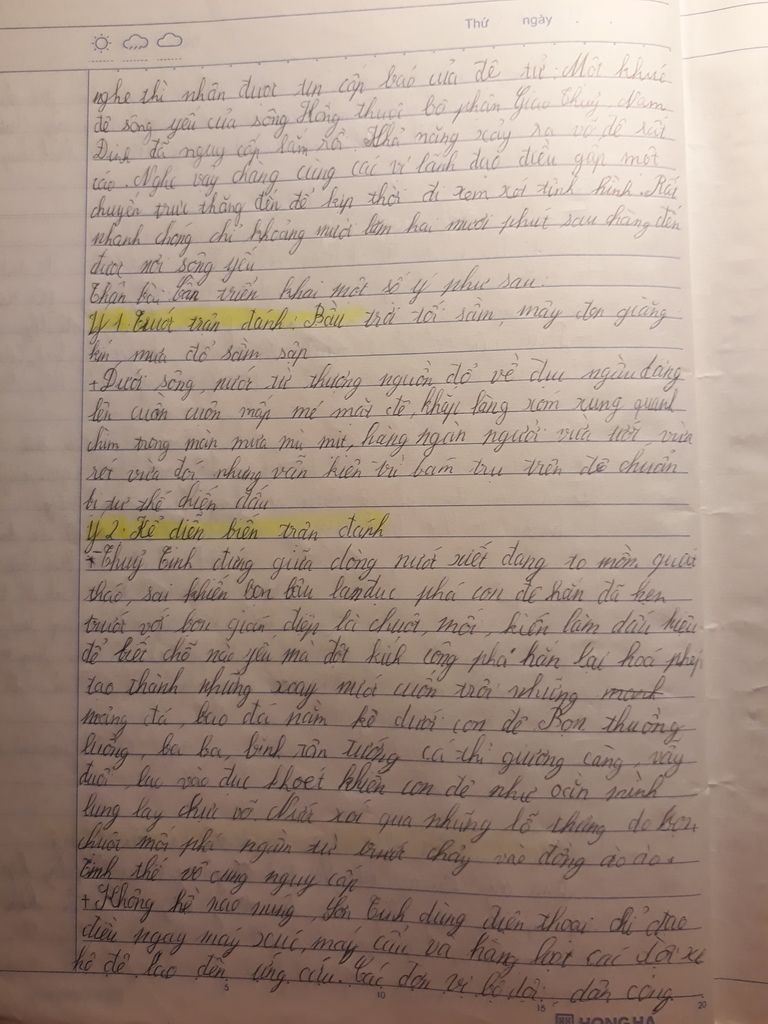 Thứ ngày
nghe thì nhận được tin cấp báo của đê từ. Một khúc
đê sông yếu của sông Hồng thuộc bộ phận Giao Thuỷ, Nam
Định đã nguy cấp lắm rồi. Khả năng xảy ra vỡ đê rất
cao. Nghe vậy chàng cùng các vị lãnh đạo điều gấp một
chuyến trực thăng đến để kịp thời đi xem xét tình hình. Rất
nhanh chóng chỉ khoảng mười lăm hai mươi phút sau chàng đến
được nơi sông yếu
Thân bài cần triển khai một số ý như sau:
Ý 1. Trước trận đánh: Bầu trời tối sầm, mây đen giăng
kín, mưa đổ sầm sập
+ Dưới sông, nước từ thượng nguồn đổ về đục ngầu dâng
lên cuồn cuộn mấp mé mặt đê, khắp làng xóm xung quanh
chìm trong màn mưa mù mịt, hàng ngàn người vừa ướt, vừa
rét vừa đói nhưng vẫn kiên trì bám trụ trên đê chuẩn
bị tư thế chiến đấu
Ý 2. Kể diễn biến trận đánh
+ Thuỷ Tinh đứng giữa dòng nước xiết đang to mồm quát
tháo, sai khiến bọn lâu la đục phá con đê hắn đã hẹn
trước với bọn gián điệp là chuột, mối, kiến làm dấu hiệu
để biết chỗ nào yếu mà đột kích công phá hắn lại hoá phép
tạo thành những xoáy nước cuốn trôi những
mảng đá, bao đá nằm kè dưới con đê Bọn thuồng
luồng, ba ba, binh tôm tướng cá thì giương càng, vẫy
đuôi, lao vào đục khoét khiến con đê như oằn mình
lung lay chực vỡ. Nước xói qua những lỗ thủng do bọn
chuột mối phá ngầm từ trước chảy vào đồng ào ào.
Tình thế vô cùng nguy cấp
+ Không hề nao núng, Sơn Tinh dùng điện thoại chỉ đạo
điều ngay máy xúc, máy cẩu và hàng loạt các đội xe
hộ đê lao đến ứng cứu. Các đơn vị bộ đội, dân công
5 10 15 20
HONG HA